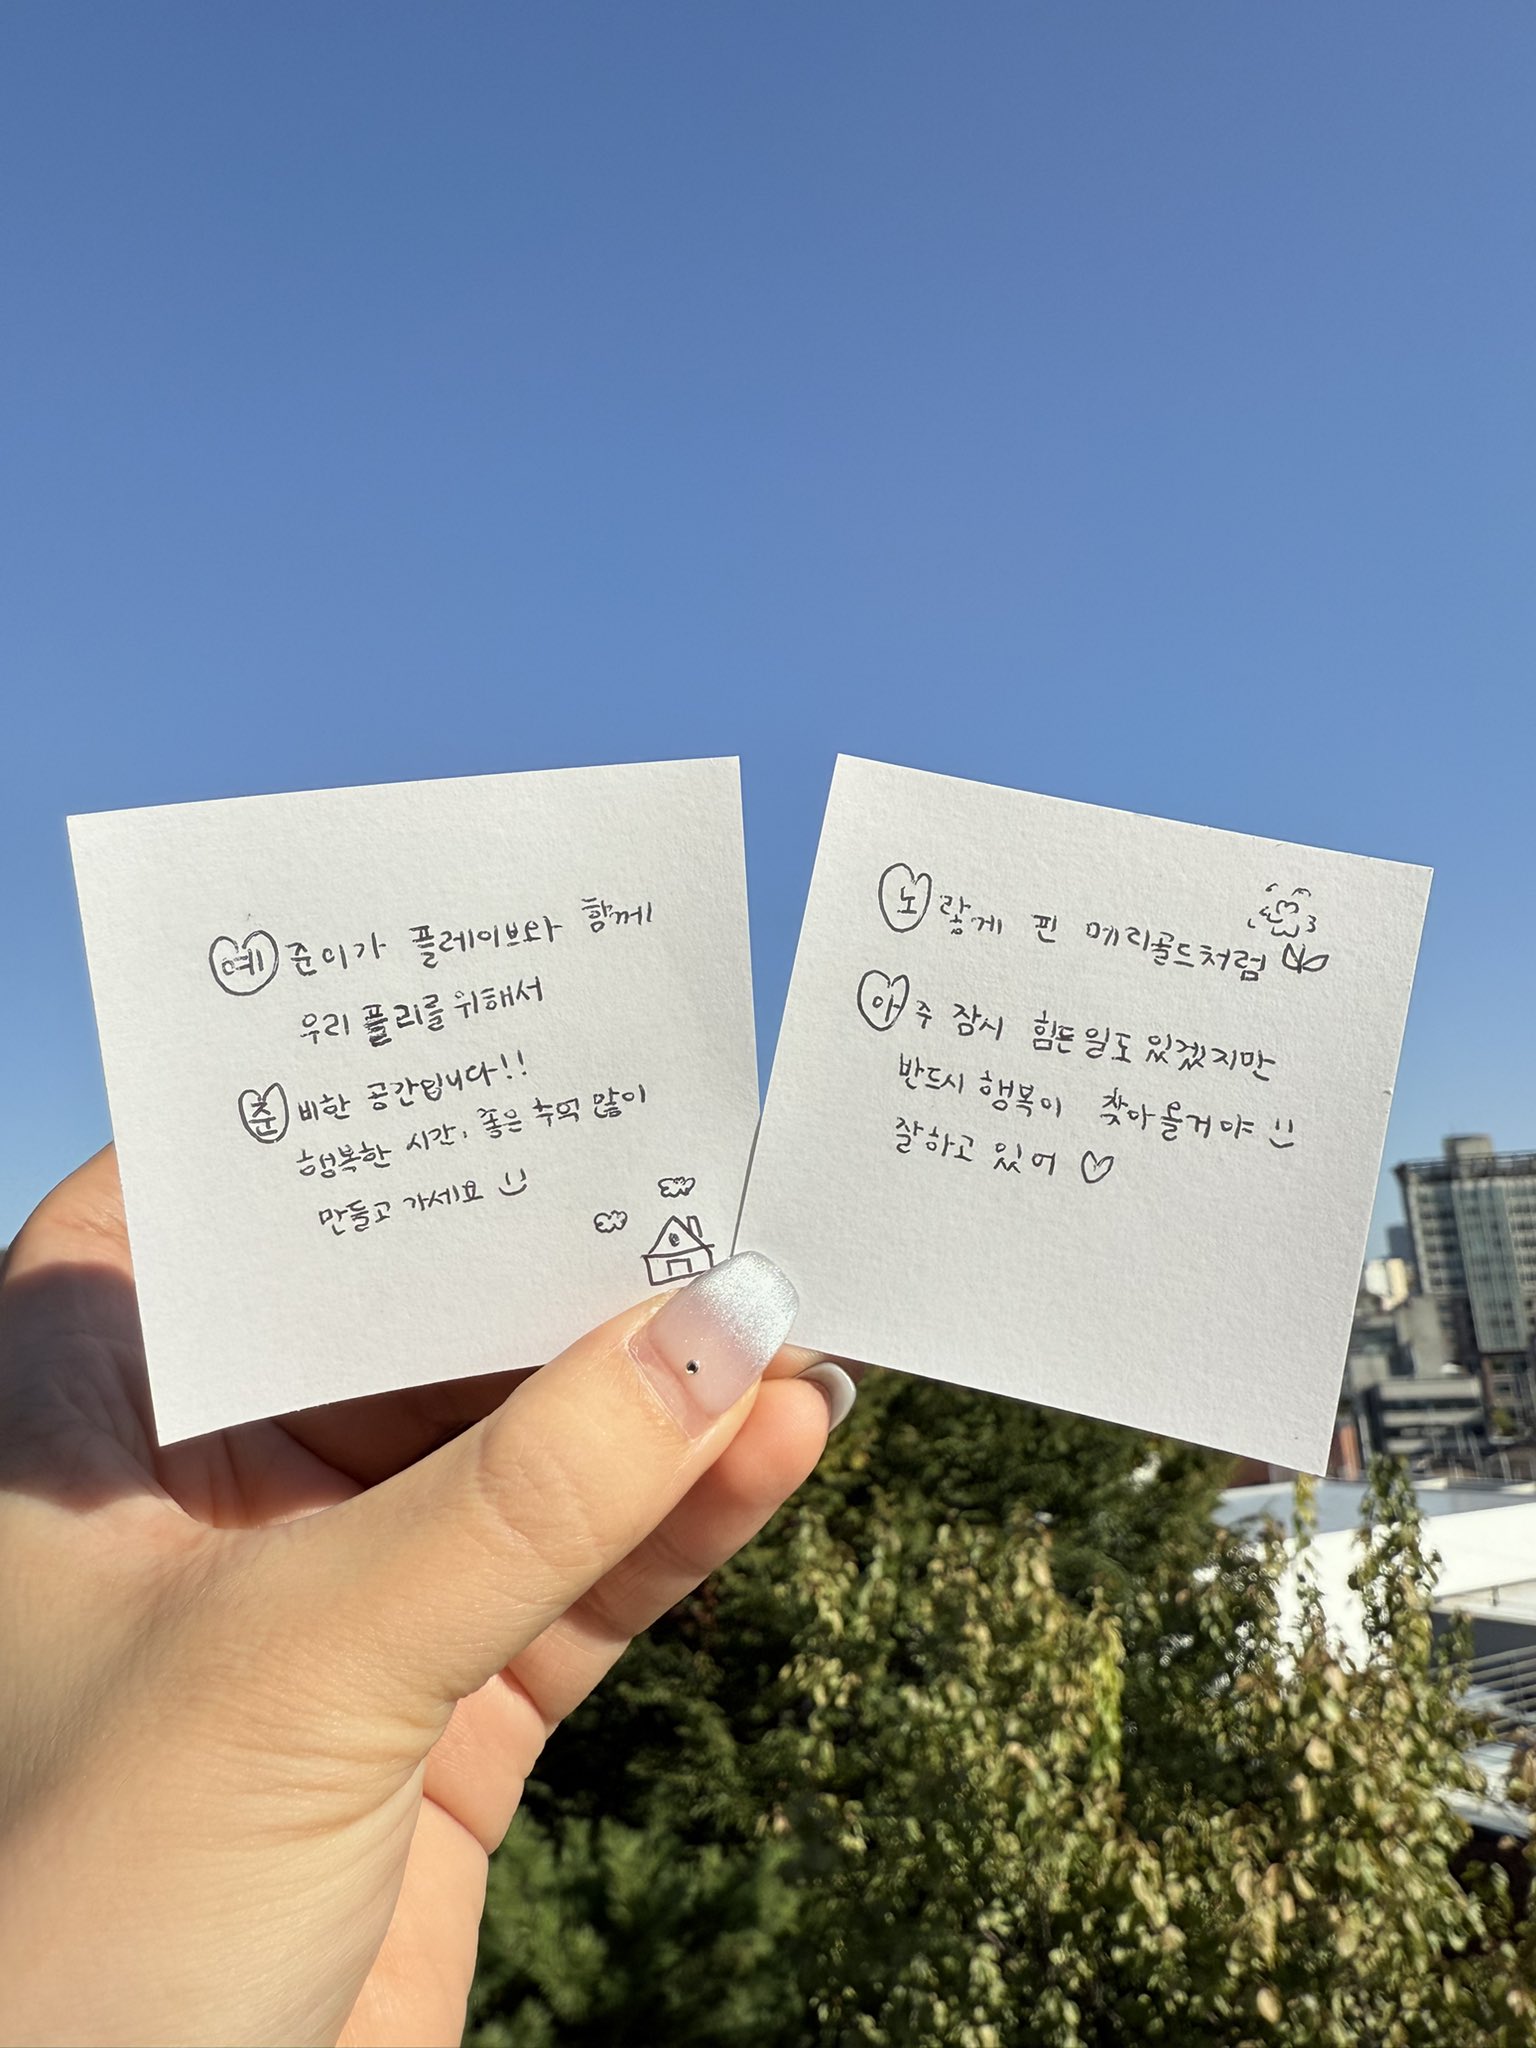 예준이가 플레이브와 함께
우리 플리를 위해서
준비한 공간입니다!!
행복한 시간, 좋은 추억 많이
만들고 가세요 :)
노랗게 핀 메리골드처럼
아주 잠시 힘든 일도 있겠지만
반드시 행복이 찾아올거야 :)
잘하고 있어 ♡